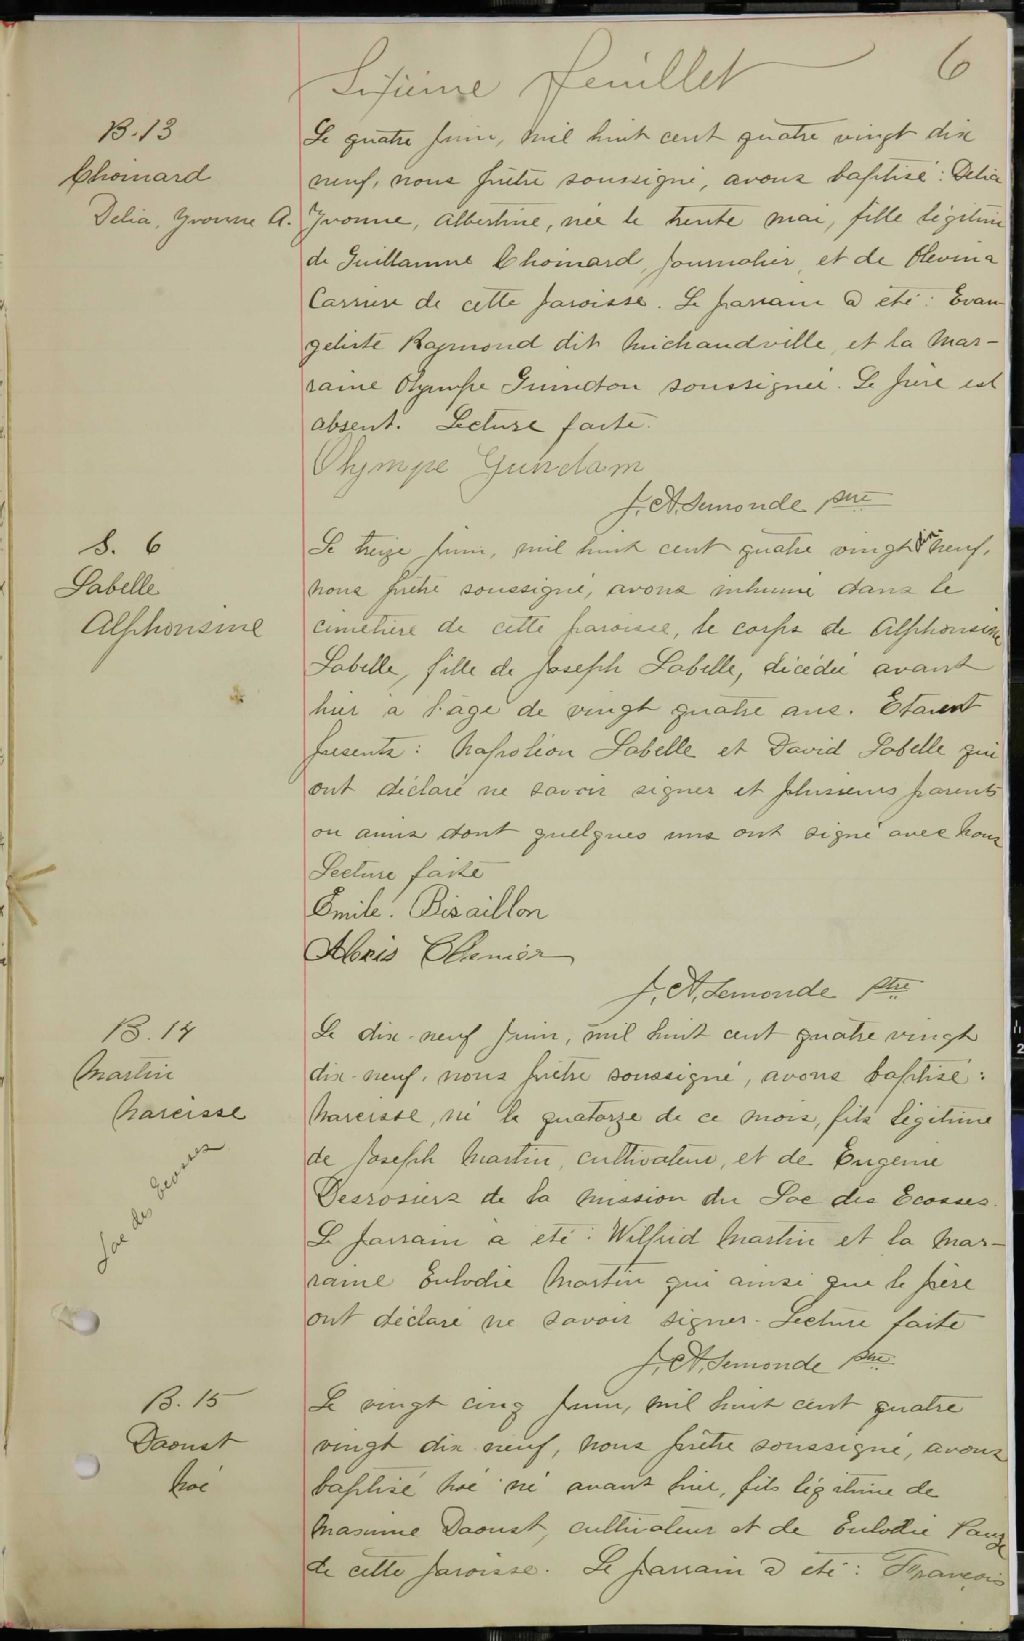 Sixième feuillet
6
B. 13
Choinard
Delia, Yvonne A.
Le quatre juin, mil huit cent quatre vingt dix
neuf, nous prêtre soussigné, avons baptisé : Delia
Yvonne, Albertine, née le trente mai, fille légitime
de Guillaume Choinard, journalier, et de Olevina
Carriere de cette paroisse. Le parrain a été : Evan-
geliste Raymond dit Michaudville, et la mar-
raine Olympe Guindon soussignée. Le père est
absent. Lecture faite.
Olympe Gundam
J. A. Lemonde ptre
S. 6
Labelle
Alphonsine
Le treize juin, mil huit cent quatre vingt dix neuf,
nous prêtre soussigné, avons inhumé dans le
cimetière de cette paroisse, le corps de Alphonsine
Labelle, fille de Joseph Labelle, décédée avant
hier a l'âge de vingt quatre ans. Etaient
presents : Napoléon Labelle et David Labelle qui
ont déclaré ne savoir signer et plusieurs parents
ou amis dont quelques uns ont signé avec nous
Lecture faite
Emile. Bisaillon
Alexis Chenier
J. A. Lemonde ptre
B. 14
Martin
Narcisse
Lac des Ecosses
Le dix-neuf juin, mil huit cent quatre vingt
dix-neuf, nous prêtre soussigné, avons baptisé :
Narcisse, né le quatorze de ce mois, fils légitime
de Joseph Martin, cultivateur, et de Eugenie
Desrosiers de la mission du Lac des Ecosses.
Le parrain a été : Wilfrid Martin et la mar-
raine Eulodie Martin qui ainsi que le père
ont déclaré ne savoir signer. Lecture faite
J. A. Lemonde ptre
B. 15
Daoust
Noé
Le vingt cinq juin, mil huit cent quatre
vingt dix neuf, nous prêtre soussigné, avons
baptisé Noé né avant hier, fils légitime de
Maxime Daoust, cultivateur et de Eulodie Lauzé
de cette paroisse. Le parrain a été : François